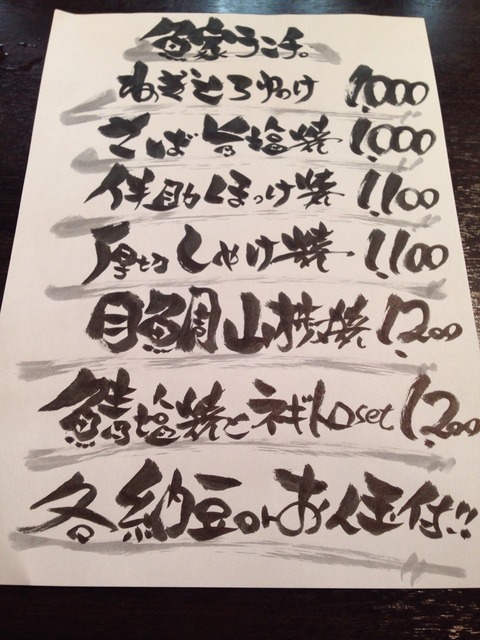 魚家らんち。
ねぎとろゆっけ 1,000
さば旨塩焼 1,000
伴助ほっけ焼 1,100
厚切しゃけ焼 1,100
目鯛山椒焼 1,200
鯖塩焼とネギトロset 1,200
各納豆orお人玉付!!